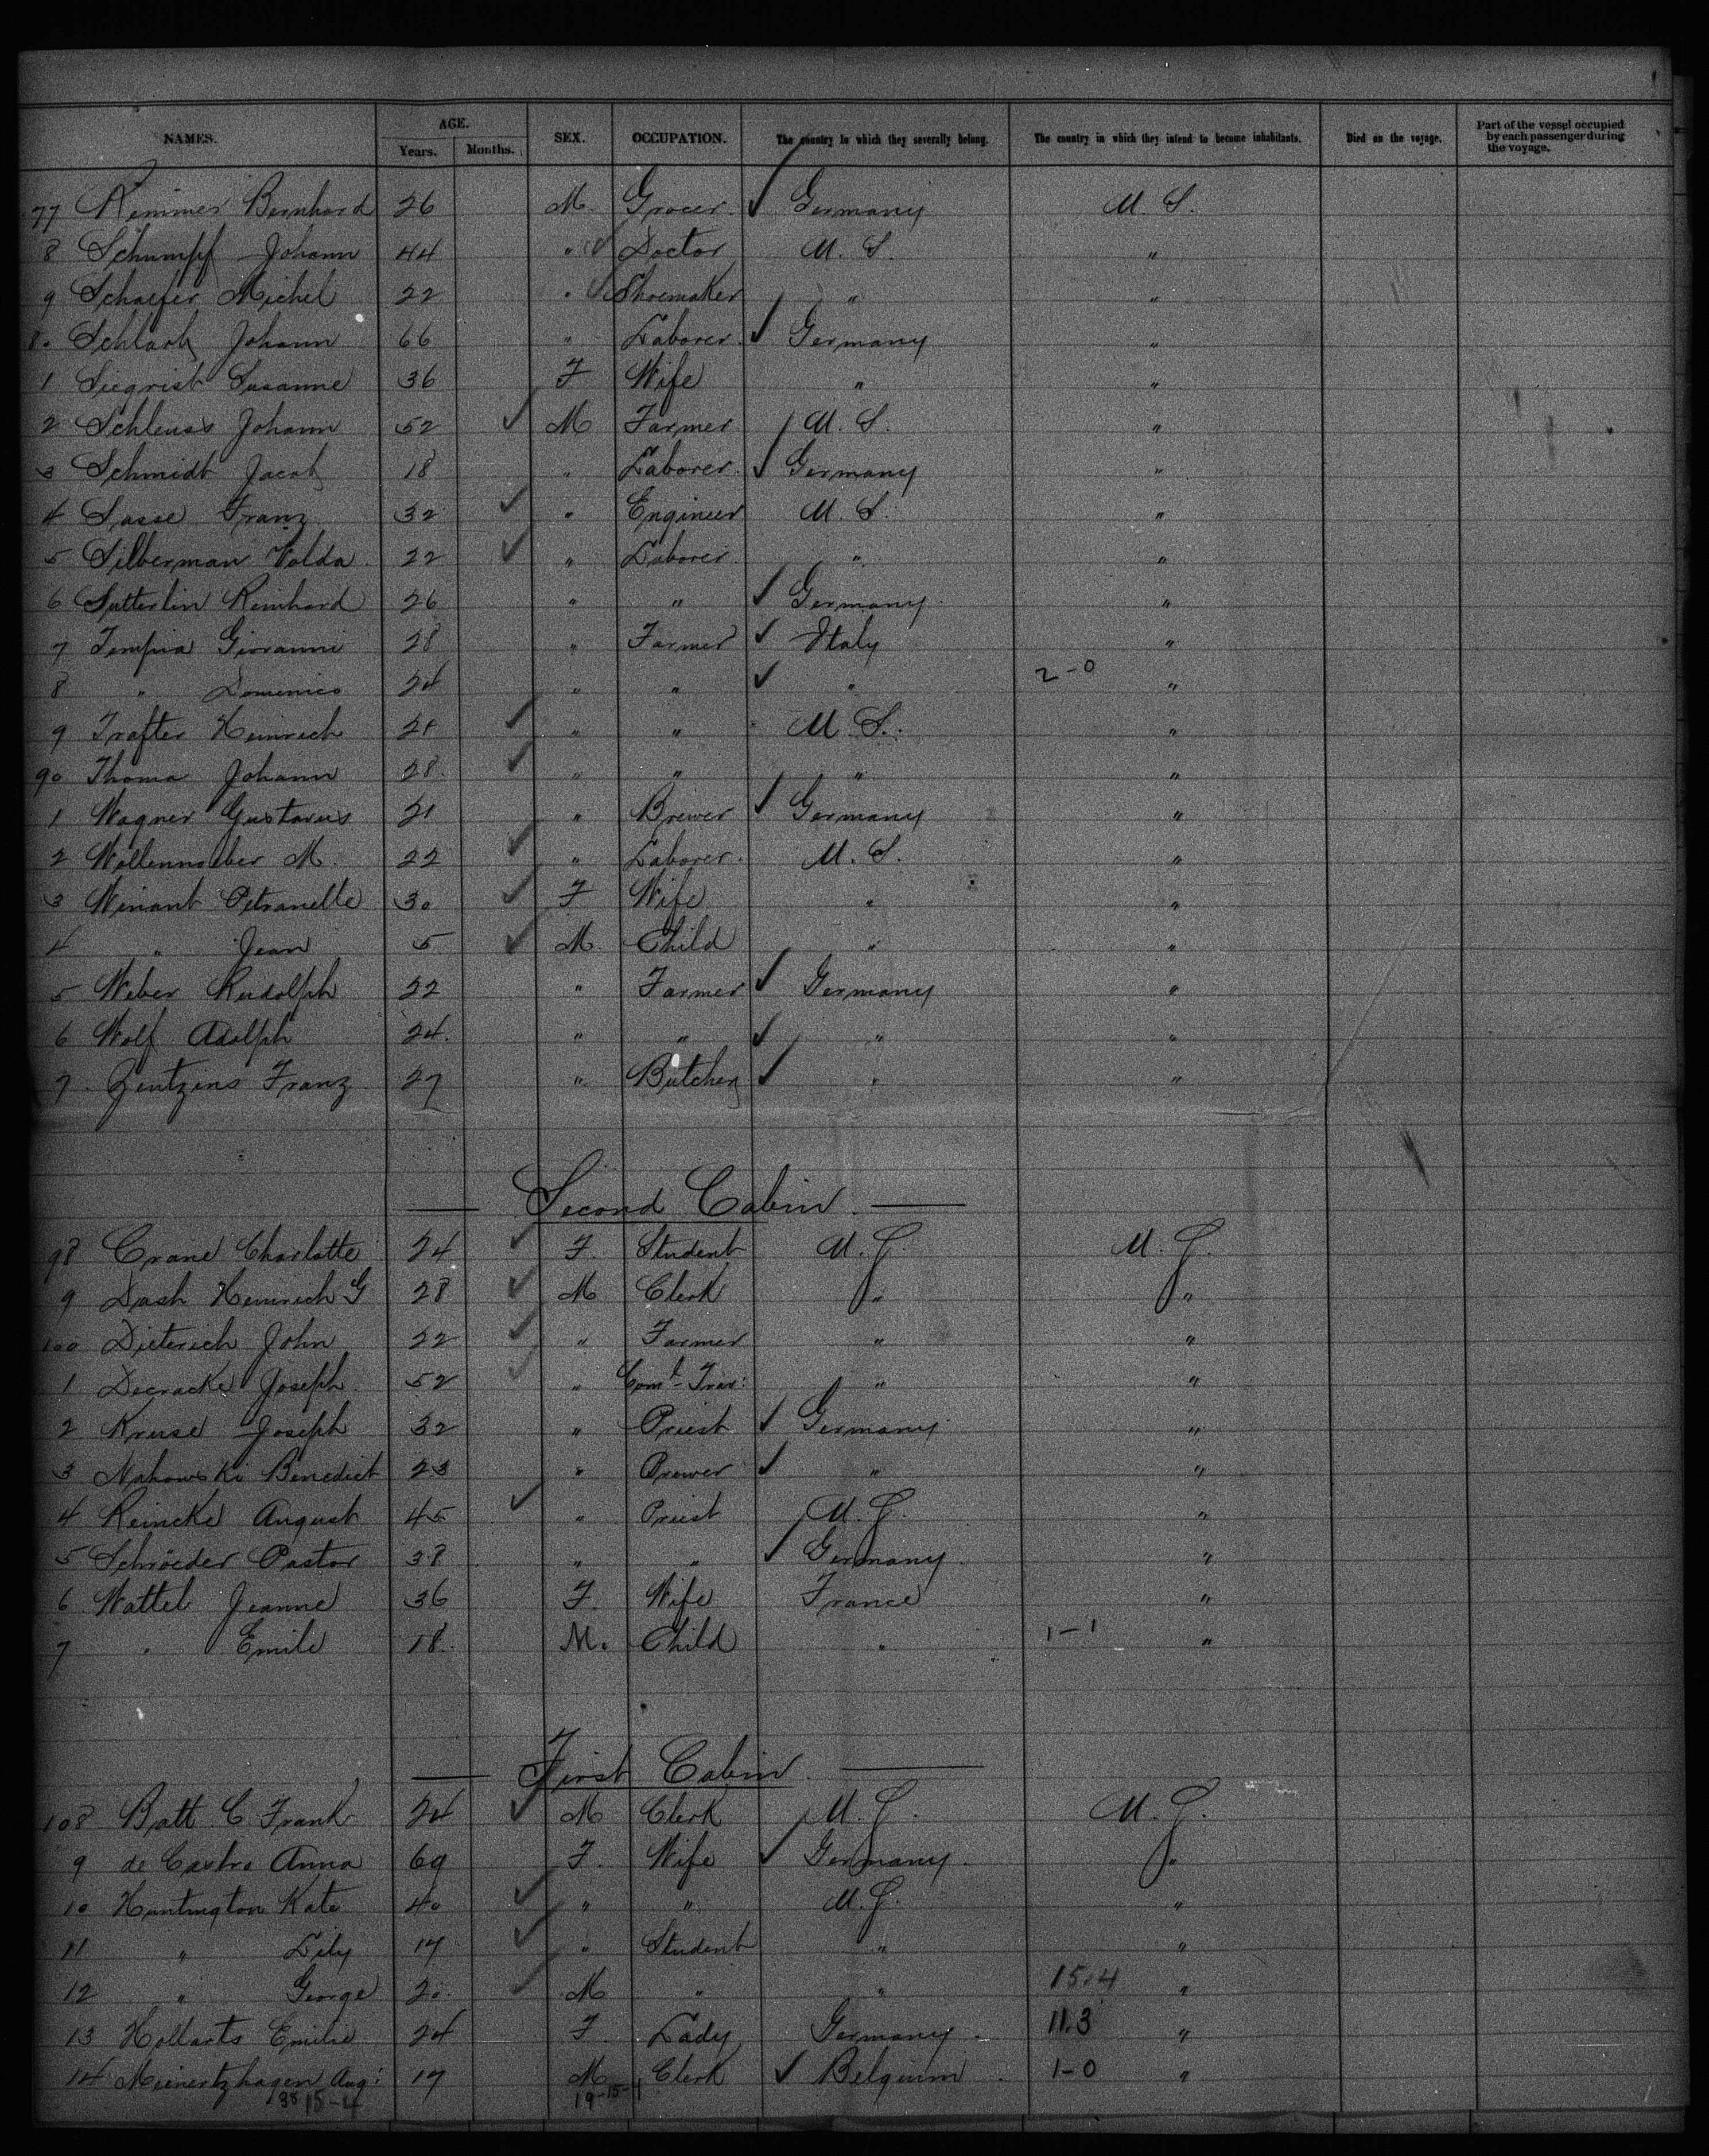 NAMES. AGE. Years. Months. SEX. OCCUPATION. The country to which they severally belong. The country in which they intend to become inhabitants. Died on the voyage. Part of the vessel occupied by each passenger during the voyage.
77 Remmer Bernhard 26 M. Grocer. ✓ Germany U. S.
8 Schumpf Johann 44 " Doctor U. S. "
9 Schaefer Michel 22 " Shoemaker " "
80 Johann 66 " Laborer ✓ Germany "
1 Siegrist Susanne 36 F Wife " "
2 Schleuss Johann 52 ✓ M Farmer U. S. "
3 Schmidt Jacob 18 " Laborer. ✓ Germany "
4 Sasse Franz 32 ✓ " Engineer U. S. "
5 Silberman 22 ✓ " Laborer " "
6 Sutterlin Reinhard 26 " " ✓ Germany "
7 Tempia Giovanni 28 " Farmer ✓ Italy "
8 " Domenico 24 " " ✓ " 2-0 "
9 Trafter Heinrich 21 ✓ " " U. S. "
90 Thoma Johann 28 ✓ " " " "
1 Wagner Gustavus 21 " Brewer ✓ Germany "
2 M. 22 ✓ " Laborer. U. S. "
3 Winant Petranelle 30 ✓ F Wife " "
4 " Jean 5 ✓ M. Child " "
5 Weber Rudolph 22 " Farmer ✓ Germany "
6 Wolf Adolph 24. " " ✓ " "
7 Franz 27 " Butcher ✓ " "
Second Cabin
98 Crane Charlotte 24 ✓ F. Student U. S. U. S.
9 Dash Heinrich G 28 ✓ M Clerk " "
100 Dieterich John 22 ✓ " Farmer " "
1 Decracke Joseph 52 ✓ " Coml. Trav: " "
2 Kruse Joseph 32 " Priest ✓ Germany "
3 Nahowski Benedict 23 " Brewer ✓ " "
4 Reincke August 45 ✓ " Priest U. S. "
5 Schröeder Pastor 38 " " ✓ Germany "
6 Wattel Jeanne 36 F. Wife France "
7 " Emile 18. M. Child " 1-1 "
First Cabin
108 Batt C Frank 24 ✓ M Clerk U. S. U. S.
9 de Castro Anna 69 F. Wife ✓ Germany "
10 Huntington Kate 40 ✓ " " U. S. "
11 " Lily 17 ✓ " Student " "
12 " George 20 ✓ M " " 15.4 "
13 Hollarts Emilie 24 F. Lady Germany 11.3 "
14 Meinertzhagen Aug: 17 M Clerk ✓ Belgium 1-0 "
38 15-4 19-15-4